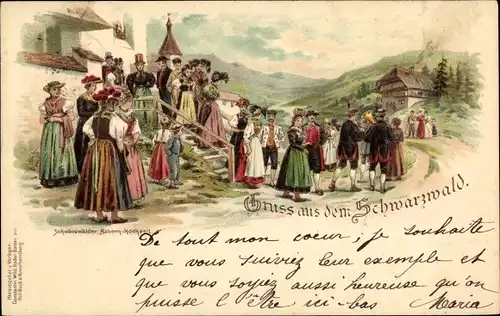 Gruss aus dem Schwarzwald.
Schwarzwälder Bauern-Hochzeit
De tout mon coeur, je souhaite
que vous suiviez leur exemple et
que vous soyiez aussi heureuse qu'on
puisse l'être ici-bas Maria